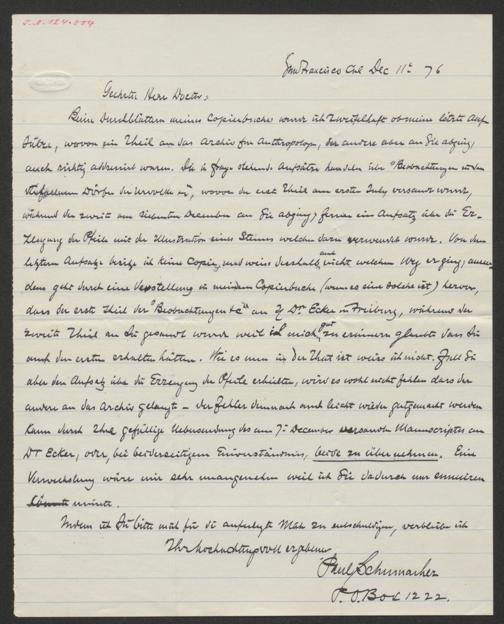 I.N. 124.004
San Francisco Cal Dec 11t 76
Geehrter Herr Doctor,
Beim Durchblättern meines Copierbuches wurde ich zweifelhaft ob meine letzte Auf
sätze, wovon ein Theil an das Archiv für Anthropologie, der andere aber an Sie abging
auch richtig addressirt waren. Die in frage stehende Aufsätze handeln über "Beobachtungen in den
verfallenen Dörfern der Urvölker", wovon der erst Theil am ersten July versandt wurde,
während der zweite am siebenten December an Sie abging, ferner ein Aufsatz über die Er-
zeugung der Pfeile mit der Illustration eines Steines welcher dazu verwendet wurde. Von dem
letztern Aufsatze besitze ich keine Copie, und weiss deshalb auch nicht welchen Weg er ging; ausser
dem geht durch eine Verstellung in meinem Copierbuche (wenn es eine solche ist) hervor,
dass der erste Theil der "Beobachtungen &c" an Dr Ecker in Freiburg, während der
zweite Theil an Sie gesandt wurde weil ich mich gut zu erinnern glaubte dass Sie
auch den ersten erhalten hätten. Wie es nun in der That ist weiss ich nicht. Falls Sie
aber den Aufsatz über die Erzeugung der Pfeile erhielten, wird es wohl nicht fehlen dass der
andere an das Archiv gelangte – der Fehler demnach auch leicht wieder gutgemacht werden
kann durch Ihre gefällige Uebersendung des am 7. December versandten Manuscriptes an
Dr Ecker, oder, bei beiderseitigem Einverständniss, beide zu übernehmen. Eine
Verwechslung wäre mir sehr unangenehm weil ich Sie dadurch nur
Indem ich Sie bitte mich für die auferlegte Müh zu entschuldigen, verbleibe ich
Ihr hochachtungsvoll ergebener
Paul Schumacher
P.O. Box 1222.